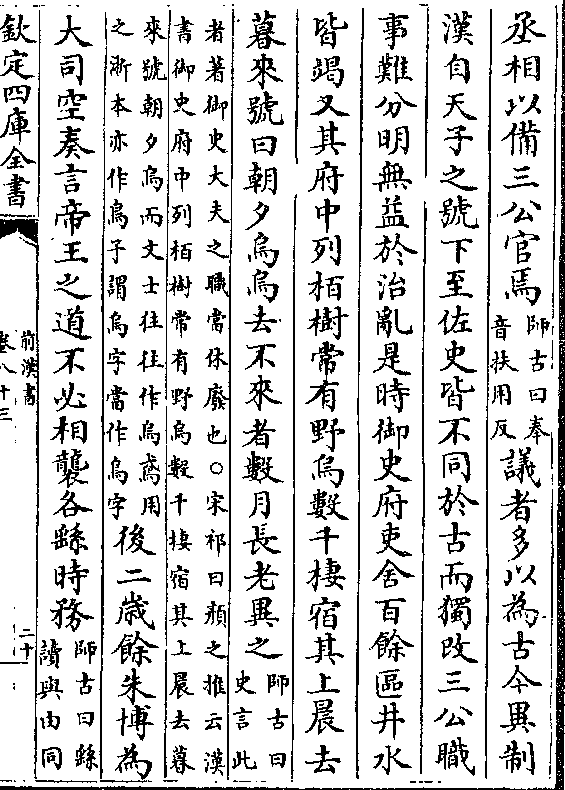 丞相以備三公官焉師古曰奉音扶用反議者多以為古今異制
漢自天子之號下至佐史皆不同於古而獨改三公職
事難分明無益於治亂是時御史府吏舍百餘區井水
皆竭又其府中列栢樹常有野烏數千棲宿其上晨去
暮來號曰朝夕烏烏去不來者數月長老異之師古曰史言此
者著御史大夫之職當休廢也○宋祁曰顔之推云漢
書御史府中列栢樹常有野烏數千棲宿其上晨去暮
來號朝夕烏而文士往往作烏鳶用
之浙本亦作烏子謂烏字當作烏字後二歲餘朱博為
大司空奏言帝王之道不必相襲各繇時務師古曰繇讀與由同
欽定四庫全書
前漢書
卷八十三
二十